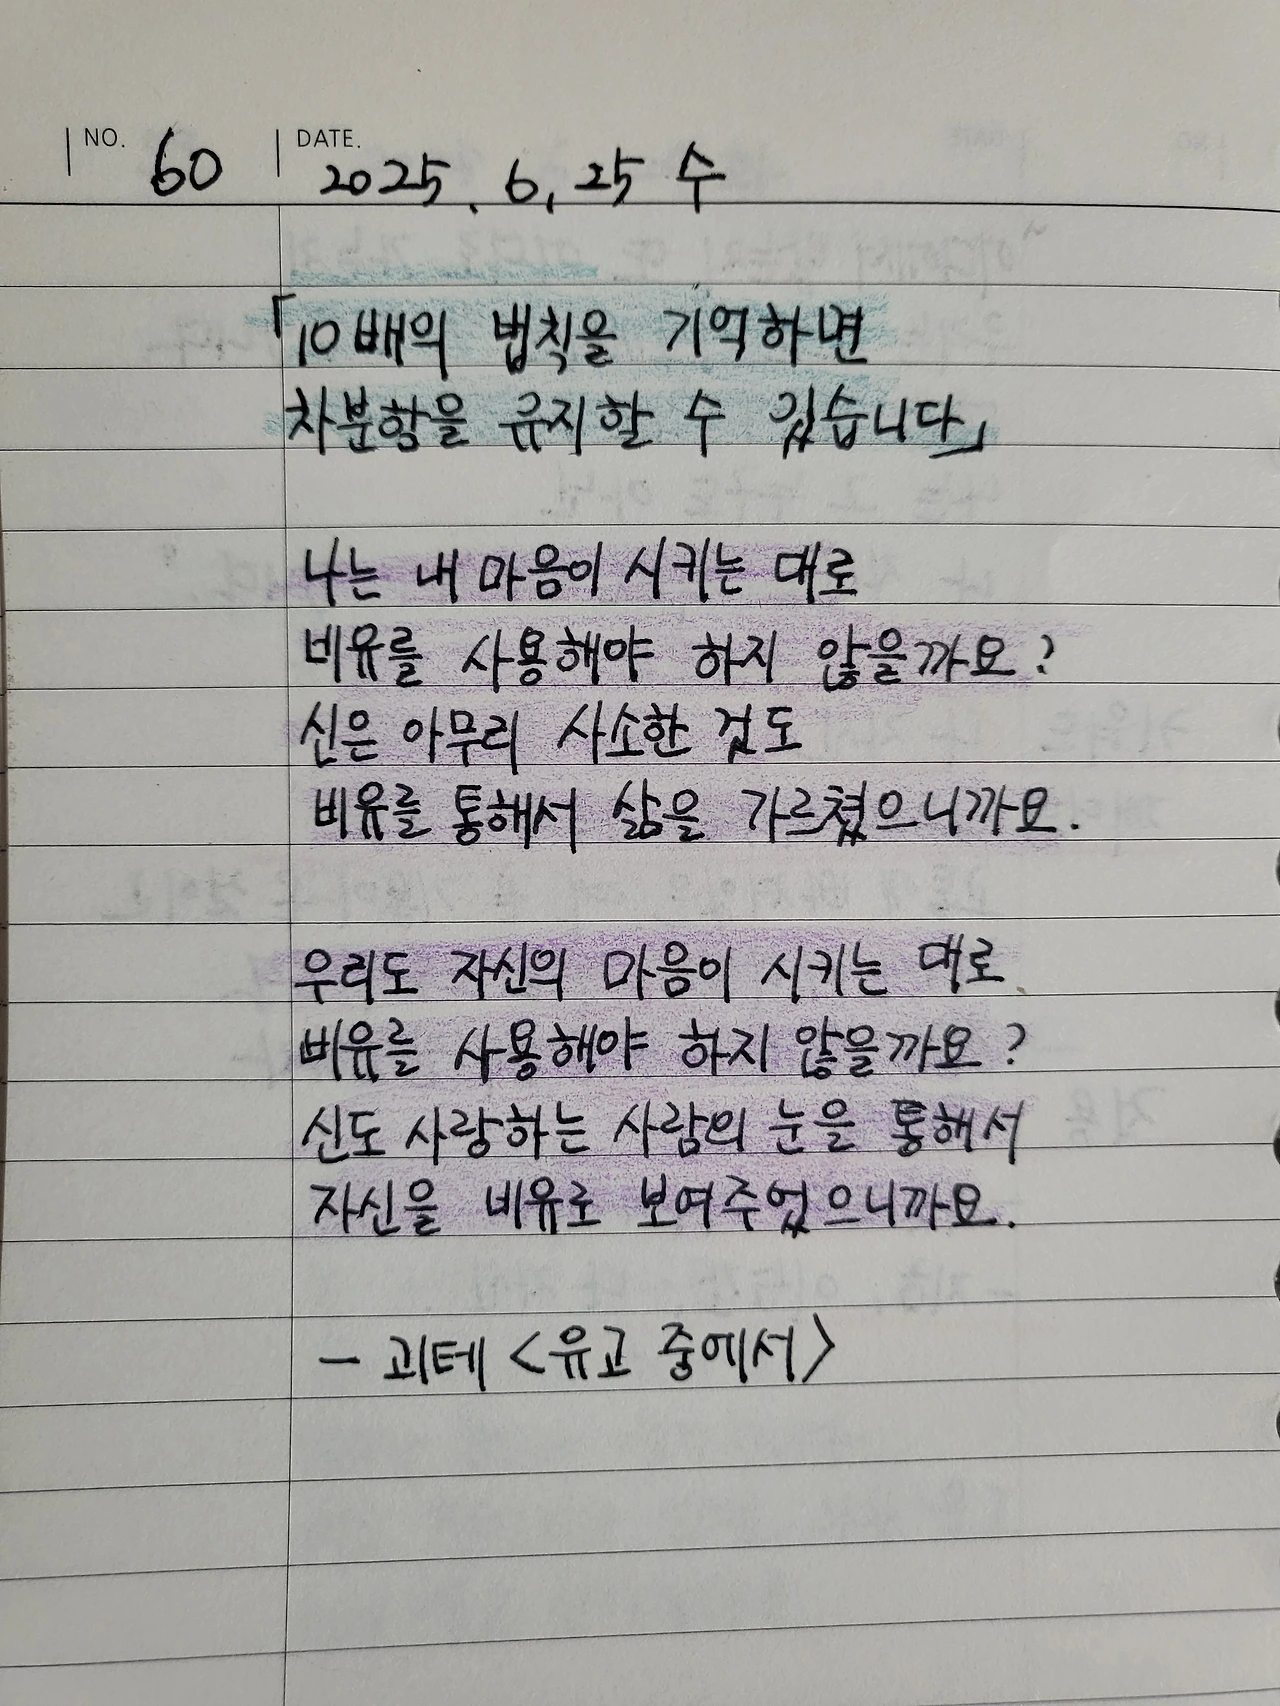 NO. 60 DATE. 2025. 6. 25 수
「10배의 법칙을 기억하면
차분함을 유지할 수 있습니다」
나는 내 마음이 시키는 대로
비유를 사용해야 하지 않을까요?
신은 아무리 사소한 것도
비유를 통해서 삶을 가르쳤으니까요.
우리도 자신의 마음이 시키는 대로
비유를 사용해야 하지 않을까요?
신도 사랑하는 사람의 눈을 통해서
자신을 비유로 보여주었으니까요.
- 괴테 <유고 중에서>